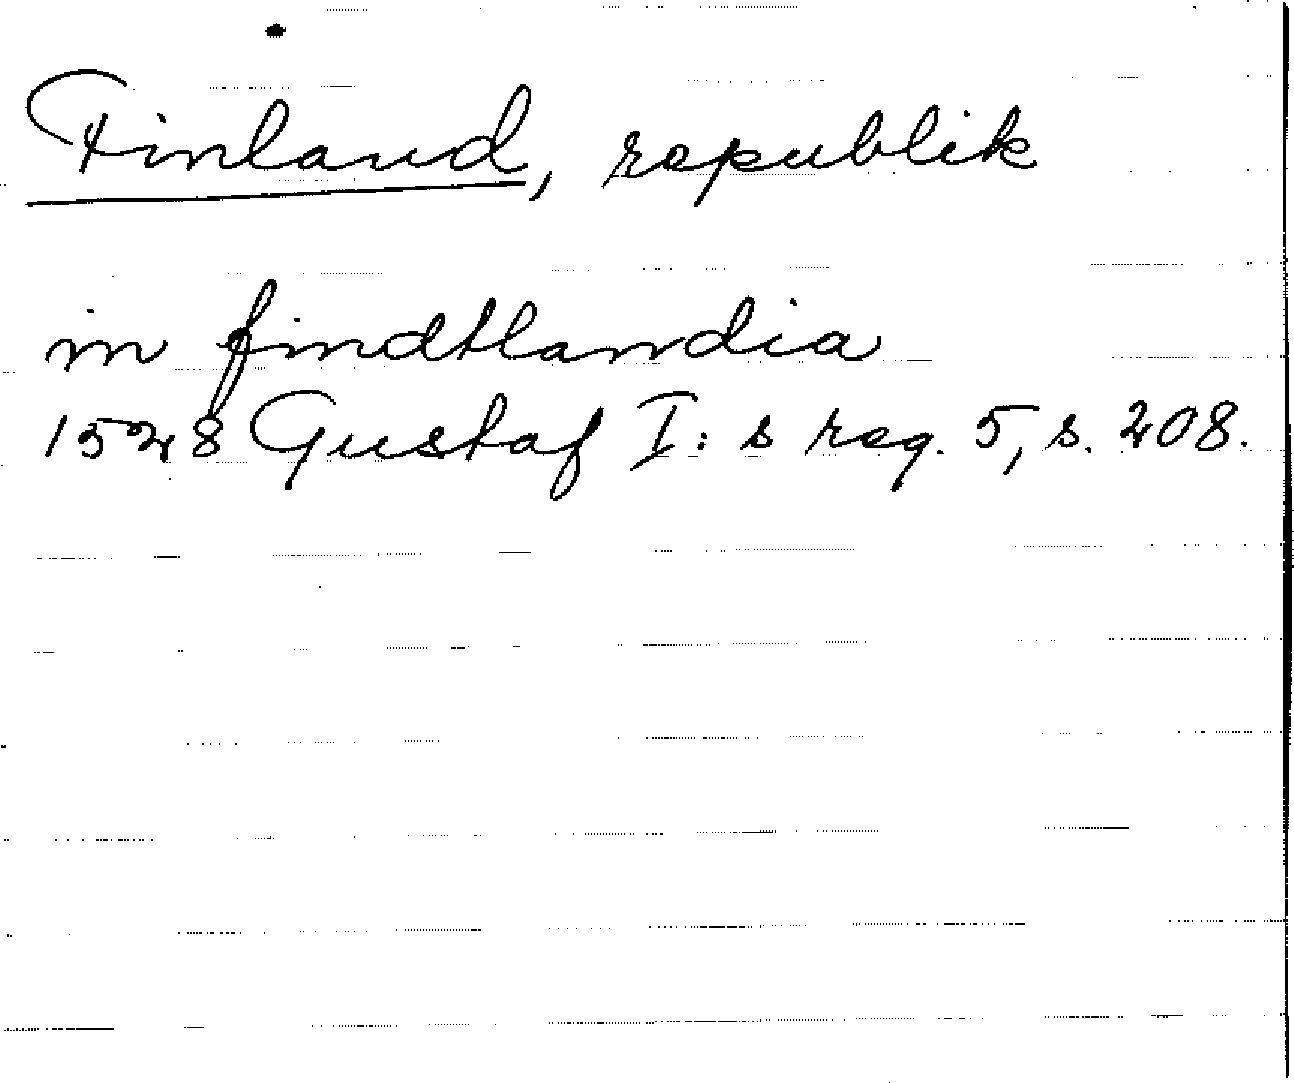 Finland, republik
in findtlandia
1528 Gustaf I:s reg. 5, s. 208.